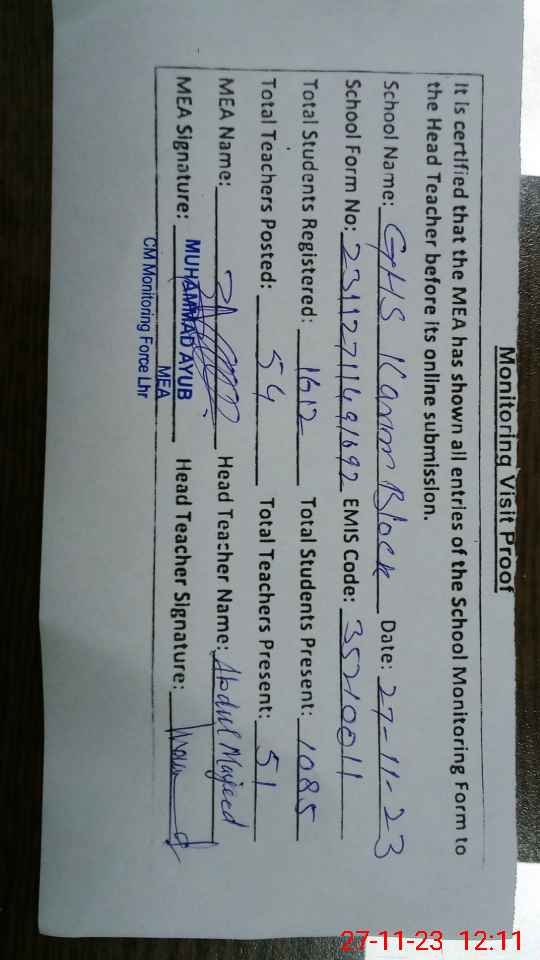 Monitoring Visit Proof
It is certified that the MEA has shown all entries of the School Monitoring Form to
the Head Teacher before its online submission.
School Name: GHS Karim Block Date: 27-11-23
School Form No: EMIS Code: 35210011
Total Students Registered: 1612 Total Students Present: 1085
Total Teachers Posted: 54 Total Teachers Present: 51
MEA Name: Head Teacher Name: Abdul Majeed
MEA Signature: MUHAMMAD AYUB Head Teacher Signature:
MEA
CM Monitoring Force Lhr
27-11-23 12:11